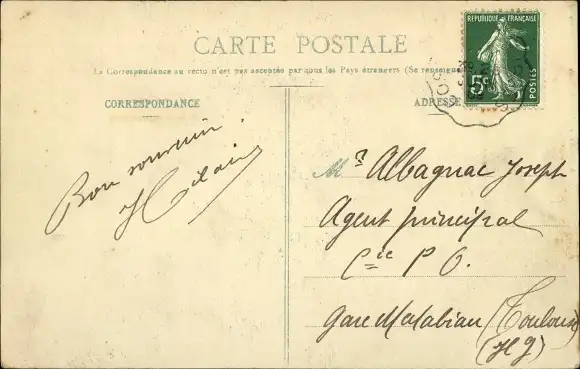 CARTE POSTALE
La Correspondance au recto n'est pas acceptée par tous les Pays étrangers (Se renseigner
CORRESPONDANCE
ADRESSE
RÉPUBLIQUE FRANÇAISE
5c
POSTES
Bon souvenir
Hilair
Mr Albagnac Joseph
Agent principal
Cie P O.
Gare Matabiau (Toulouse)
(H G)